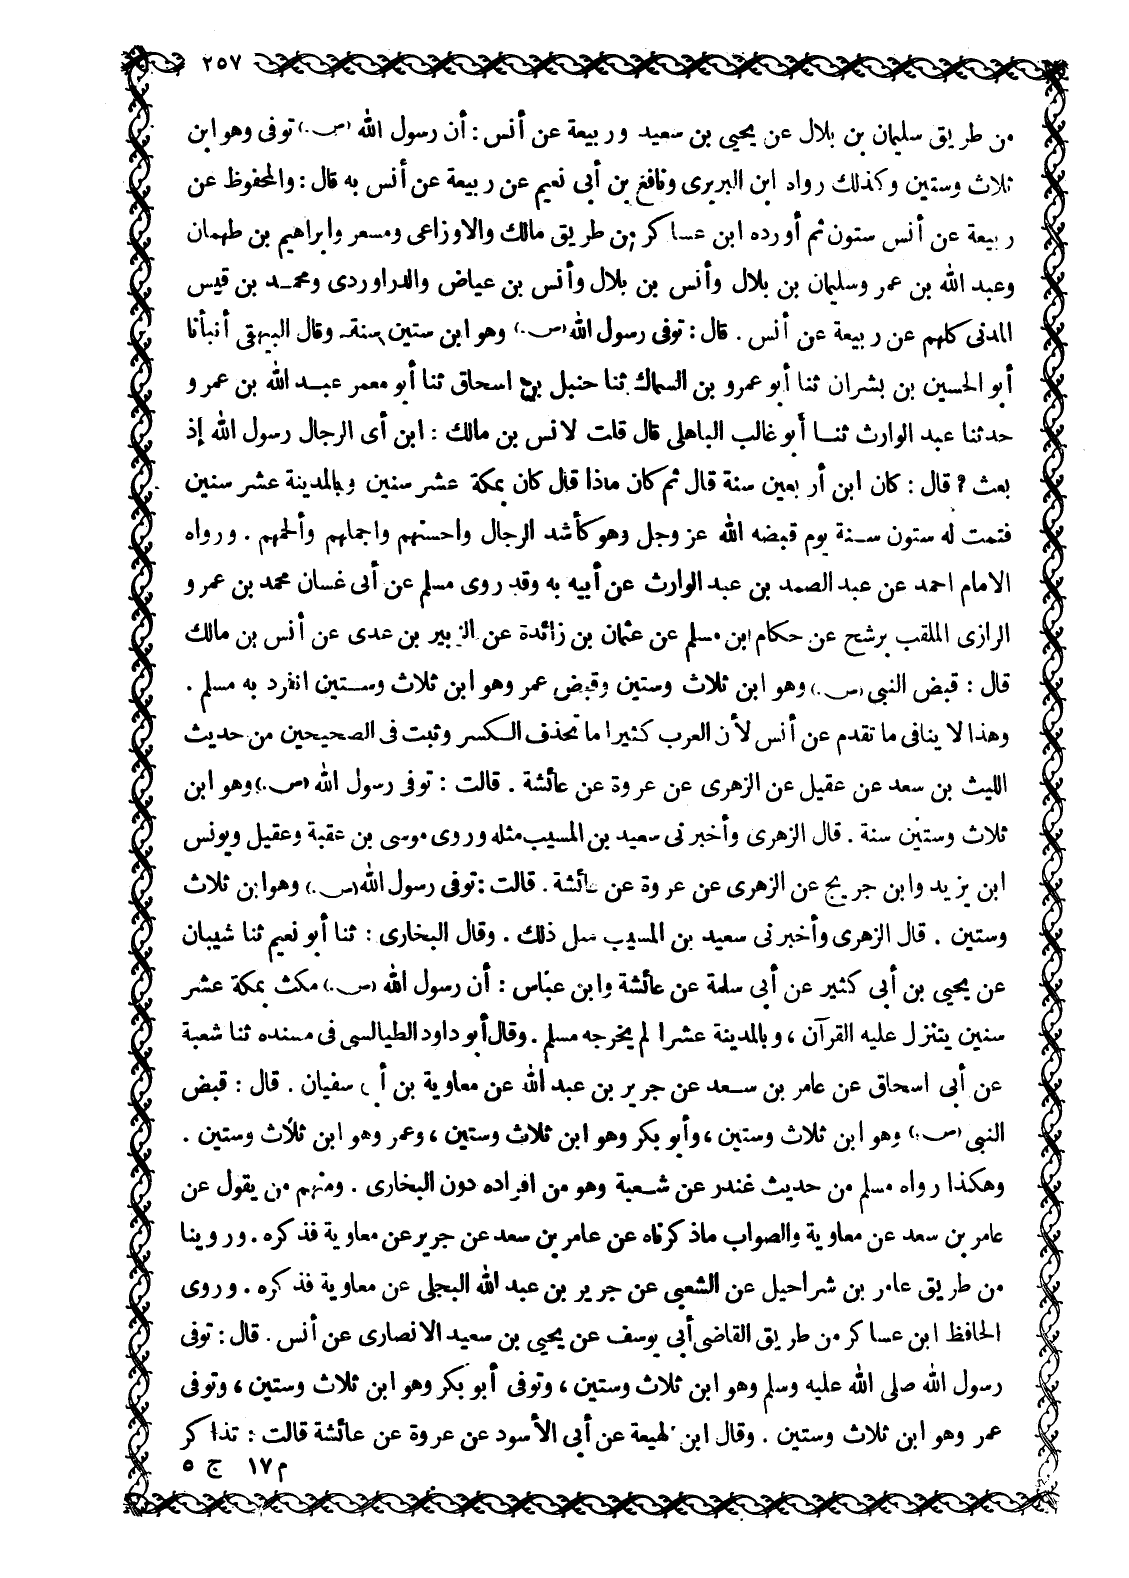 ٢٥٧
من طريق سليمان بن بلال عن يحيى بن سعيد وربيعة عن أنس : أن رسول الله (ص.) توفى وهو ابن
ثلاث وستين وكذلك رواه ابن البربرى ونافع بن أبى نعيم عن ربيعة عن أنس به قال : والمحفوظ عن
ربيعة عن أنس ستون ثم أورده ابن عساكر من طريق مالك والاوزاعى ومسعر وابراهيم بن طهمان
وعبد الله بن عمر وسليمان بن بلال وأنس بن بلال وأنس بن عياض والدراوردى ومحمد بن قيس
المدنى كلهم عن ربيعة عن أنس . قال : توفى رسول الله (ص.) وهو ابن ستين سنة. وقال البيهقى أنبأنا
أبو الحسين بن بشران ثنا أبو عمرو بن السماك ثنا حنبل بن اسحاق ثنا أبو معمر عبد الله بن عمرو
حدثنا عبد الوارث ثنا أبو غالب الباهلى قال قلت لانس بن مالك : ابن أى الرجال رسول الله إذ
بعث ؟ قال : كان ابن أربعين سنة قال ثم كان ماذا قال كان بمكة عشر سنين وبالمدينة عشر سنين
فتمت له ستون سنة يوم قبضه الله عز وجل وهو كأشد الرجال واحسنهم واجملهم وألحمهم . ورواه
الامام احمد عن عبد الصمد بن عبد الوارث عن أبيه به وقد روى مسلم عن أبى غسان محمد بن عمرو
الرازى الملقب برشح عن حكام ابن مسلم عن عثمان بن زائدة عن الزبير بن عدى عن أنس بن مالك
قال : قبض النبى (ص.) وهو ابن ثلاث وستين وقبض عمر وهو ابن ثلاث وستين انفرد به مسلم .
وهذا لا ينافى ما تقدم عن أنس لأن العرب كثيرا ما تحذف الكسر وثبت فى الصحيحين من حديث
الليث بن سعد عن عقيل عن الزهرى عن عروة عن عائشة . قالت : توفى رسول الله (ص.) وهو ابن
ثلاث وستين سنة . قال الزهرى وأخبرنى سعيد بن المسيب مثله وروى موسى بن عقبة وعقيل ويونس
ابن يزيد وابن جريج عن الزهرى عن عروة عن عائشة . قالت : توفى رسول الله (ص.) وهو ابن ثلاث
وستين . قال الزهرى وأخبرنى سعيد بن المسيب مثل ذلك . وقال البخارى : ثنا أبو نعيم ثنا شيبان
عن يحيى بن أبى كثير عن أبى سلمة عن عائشة وابن عباس : أن رسول الله (ص.) مكث بمكة عشر
سنين يتنزل عليه القرآن ، وبالمدينة عشرا لم يخرجه مسلم . وقال أبو داود الطيالسى فى مسنده ثنا شعبة
عن أبى اسحاق عن عامر بن سعد عن جرير بن عبد الله عن معاوية بن أبى سفيان . قال : قبض
النبى (ص.) وهو ابن ثلاث وستين ، وأبو بكر وهو ابن ثلاث وستين ، وعمر وهو ابن ثلاث وستين .
وهكذا رواه مسلم من حديث غندر عن شعبة وهو من افراده دون البخارى . ومنهم من يقول عن
عامر بن سعد عن معاوية والصواب ماذكرناه عن عامر بن سعد عن جرير عن معاوية فذكره . وروينا
من طريق عامر بن شراحيل عن الشعبى عن جرير بن عبد الله البجلى عن معاوية فذكره . وروى
الحافظ ابن عساكر من طريق القاضى أبى يوسف عن يحيى بن سعيد الانصارى عن أنس . قال : توفى
رسول الله صلى الله عليه وسلم وهو ابن ثلاث وستين ، وتوفى أبو بكر وهو ابن ثلاث وستين ، وتوفى
عمر وهو ابن ثلاث وستين . وقال ابن لهيعة عن أبى الأسود عن عروة عن عائشة قالت : تذاكر
م ١٧ ج ٥